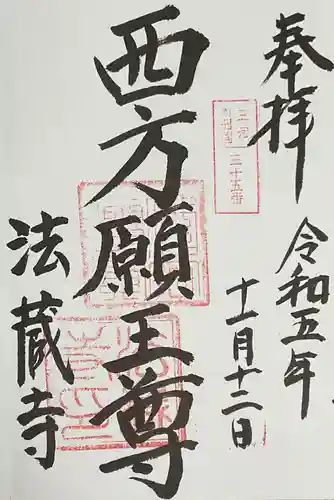 奉拝
令和五年
十一月十二日
三十五番
西方願王尊
法蔵寺